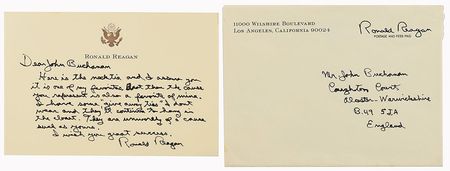 RONALD REAGAN
Dear John Buchanan
Here is the necktie and I assure you
it is one of my favorites. But then the cause
you represent is also a favorite of mine.
I have some "give away ties" I don't
wear and they'll continue to hang in
the closet. They are unworthy of a cause
such as yours.
I wish you great success.
Ronald Reagan
11000 WILSHIRE BOULEVARD
LOS ANGELES, CALIFORNIA 90024
Ronald Reagan
POSTAGE AND FEES PAID
Mr. John Buchanan
Coughton Court
Alcester - Warwickshire
B.49 5JA
England